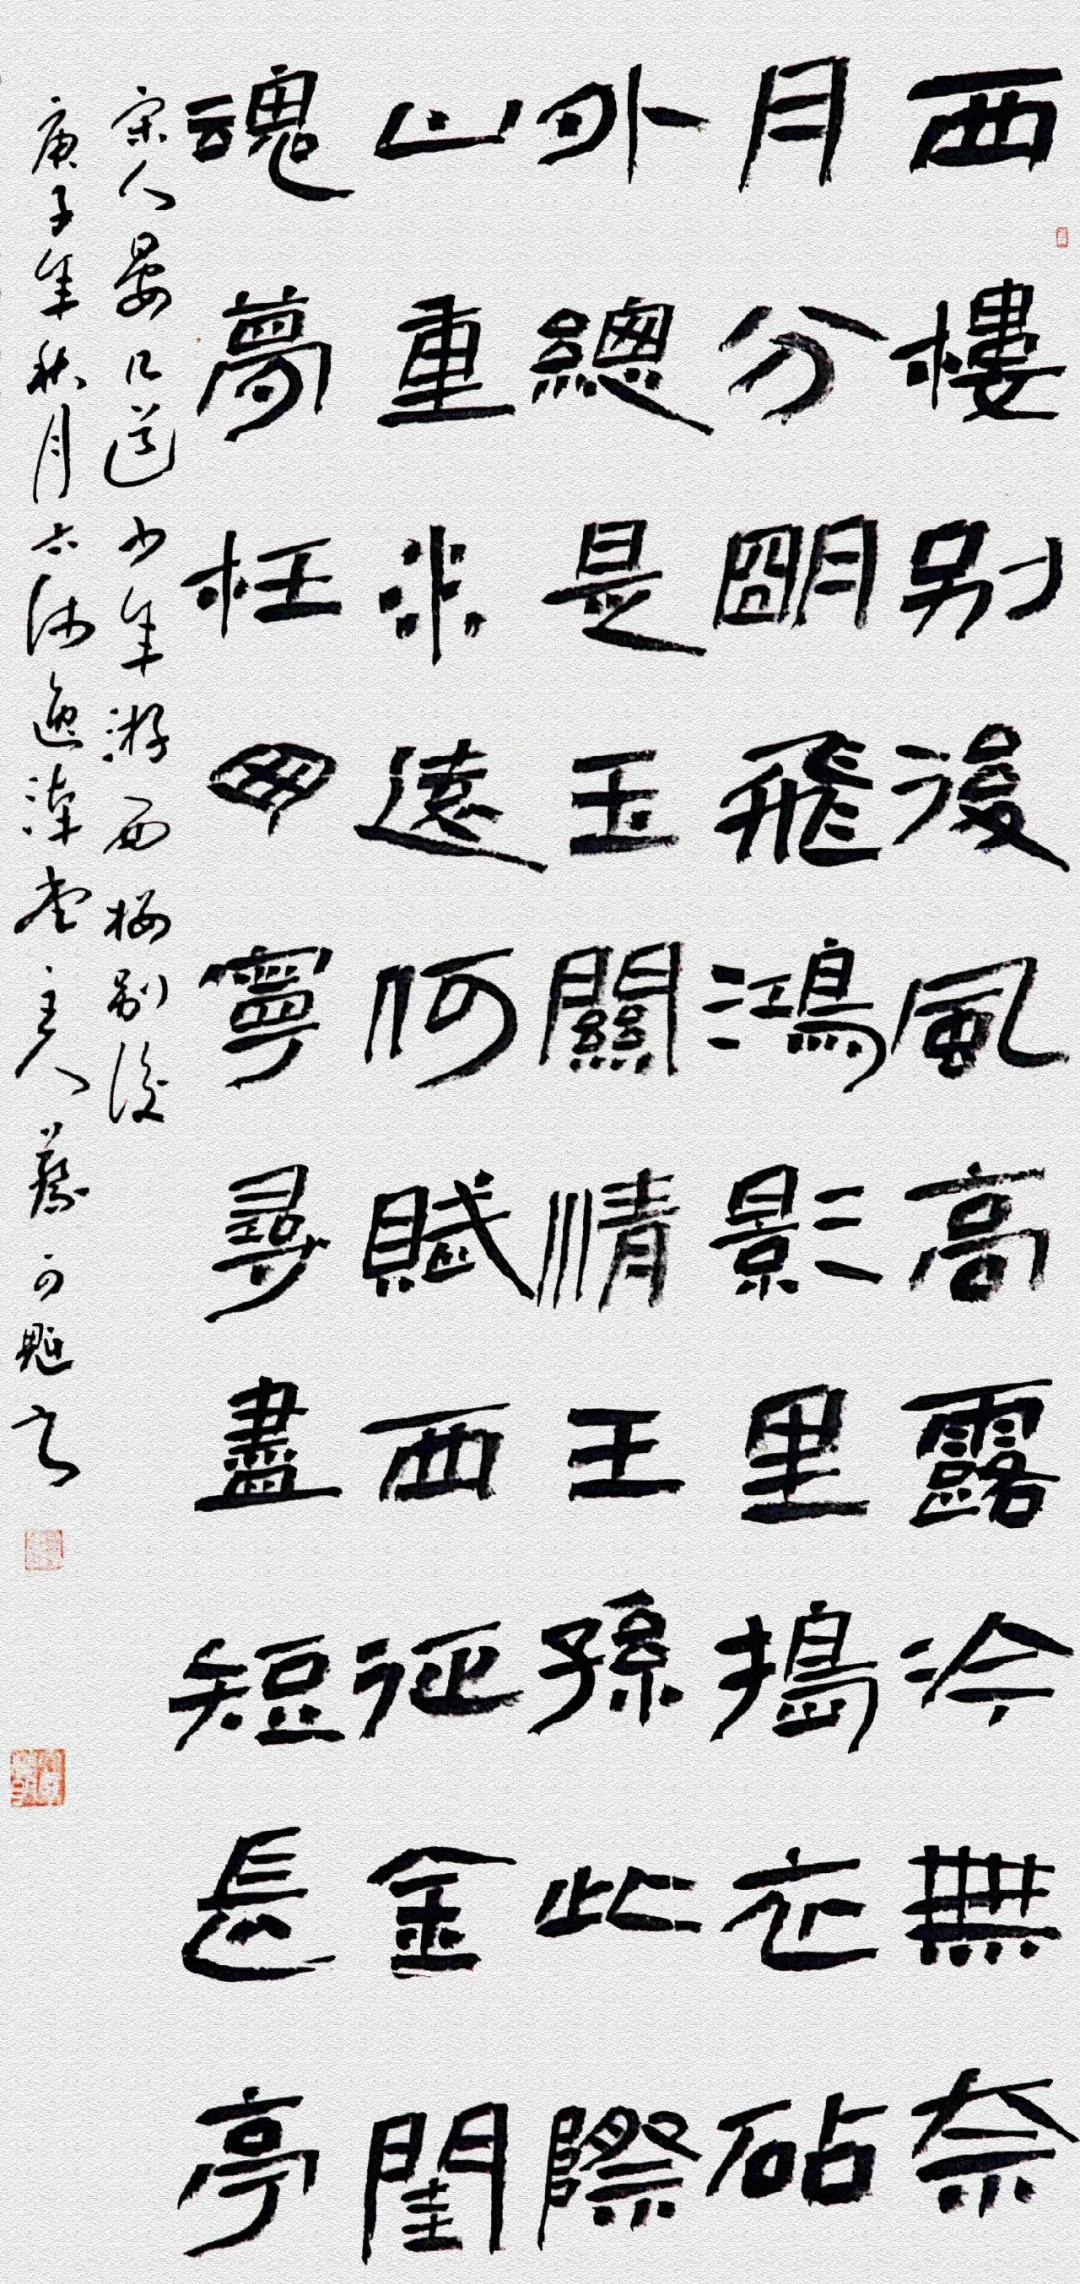 西樓別後風高露冷無奈
月分朙飛鴻影里搗衣砧
外總是玉關情王孫此際
山重水遠何賦西征金閨
魂夢枉丁寧尋盡短長亭
宋人晏几道少年游西樓別後
庚子年秋月主人